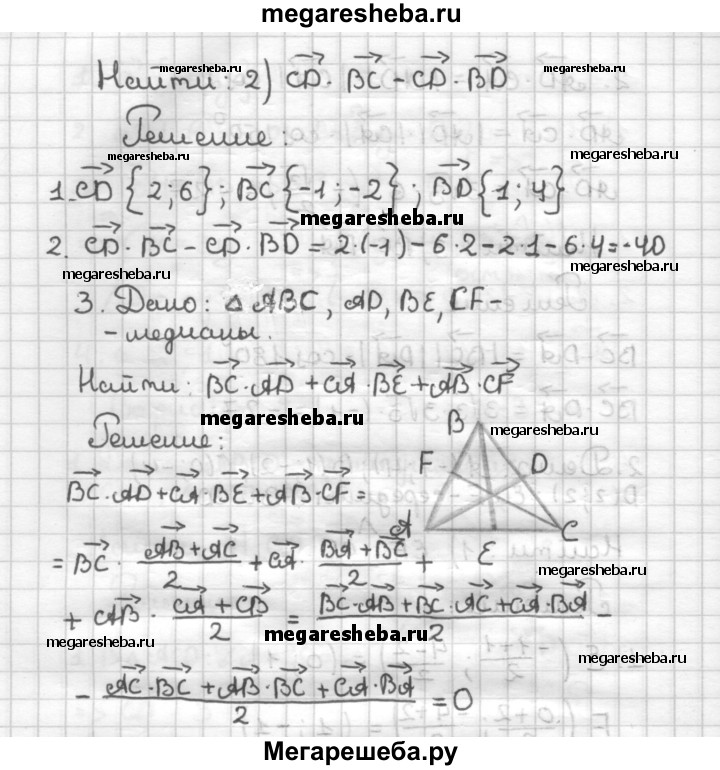 megaresheba.ru
Найти: 2) CD · BC - CD · BD
megaresheba.ru
megaresheba.ru
Решение:
megaresheba.ru
megaresheba.ru
1. CD {2; 6}; BC {-1; -2}; BD {1; 4}
megaresheba.ru
2. CD · BC - CD · BD = 2·(-1) - 6·2 - 2·1 - 6·4 = -40
megaresheba.ru
megaresheba.ru
3. Дано: △ ABC, AD, BE, CF -
- медианы.
Найти: BC · AD + CA · BE + AB · CF
megaresheba.ru
Решение:
B
megaresheba.ru
F D
BC · AD + CA · BE + AB · CF =
A E C
= BC · (AB + AC)/2 + CA · (BA + BC)/2 +
megaresheba.ru
+ AB · (CA + CB)/2 = (BC · AB + BC · AC + CA · BA)/2 -
megaresheba.ru
megaresheba.ru
megaresheba.ru
- (AC · BC + AB · BC + CA · BA)/2 = 0
Мегарешеба.ру